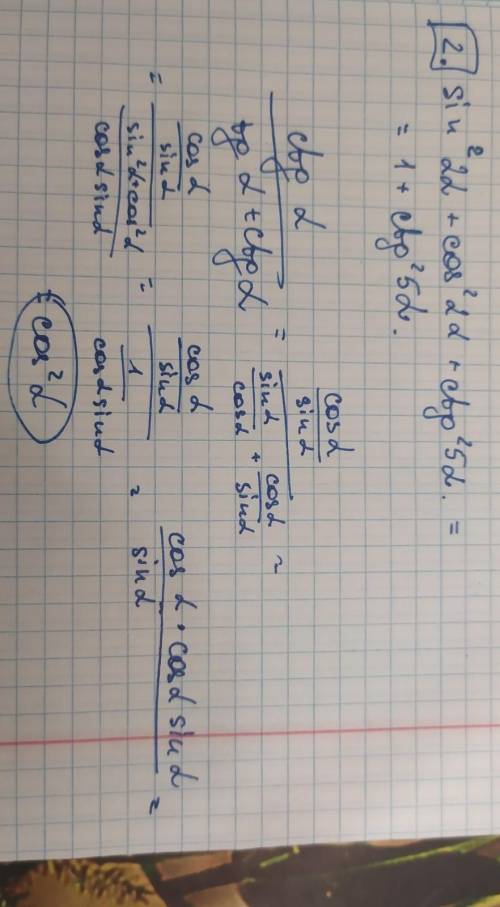 2. sin² 2α + cos² 2α + ctg² 5α. =
= 1 + ctg² 5α.
ctg α / (tg α + ctg α) = (cosα / sinα) / (sinα / cosα + cosα / sinα) =
= (cosα / sinα) / ((sin²α + cos²α) / (cosα sinα)) = (cosα / sinα) / (1 / (cosα sinα)) = (cosα · cosα sinα) / sinα =
= cos²α